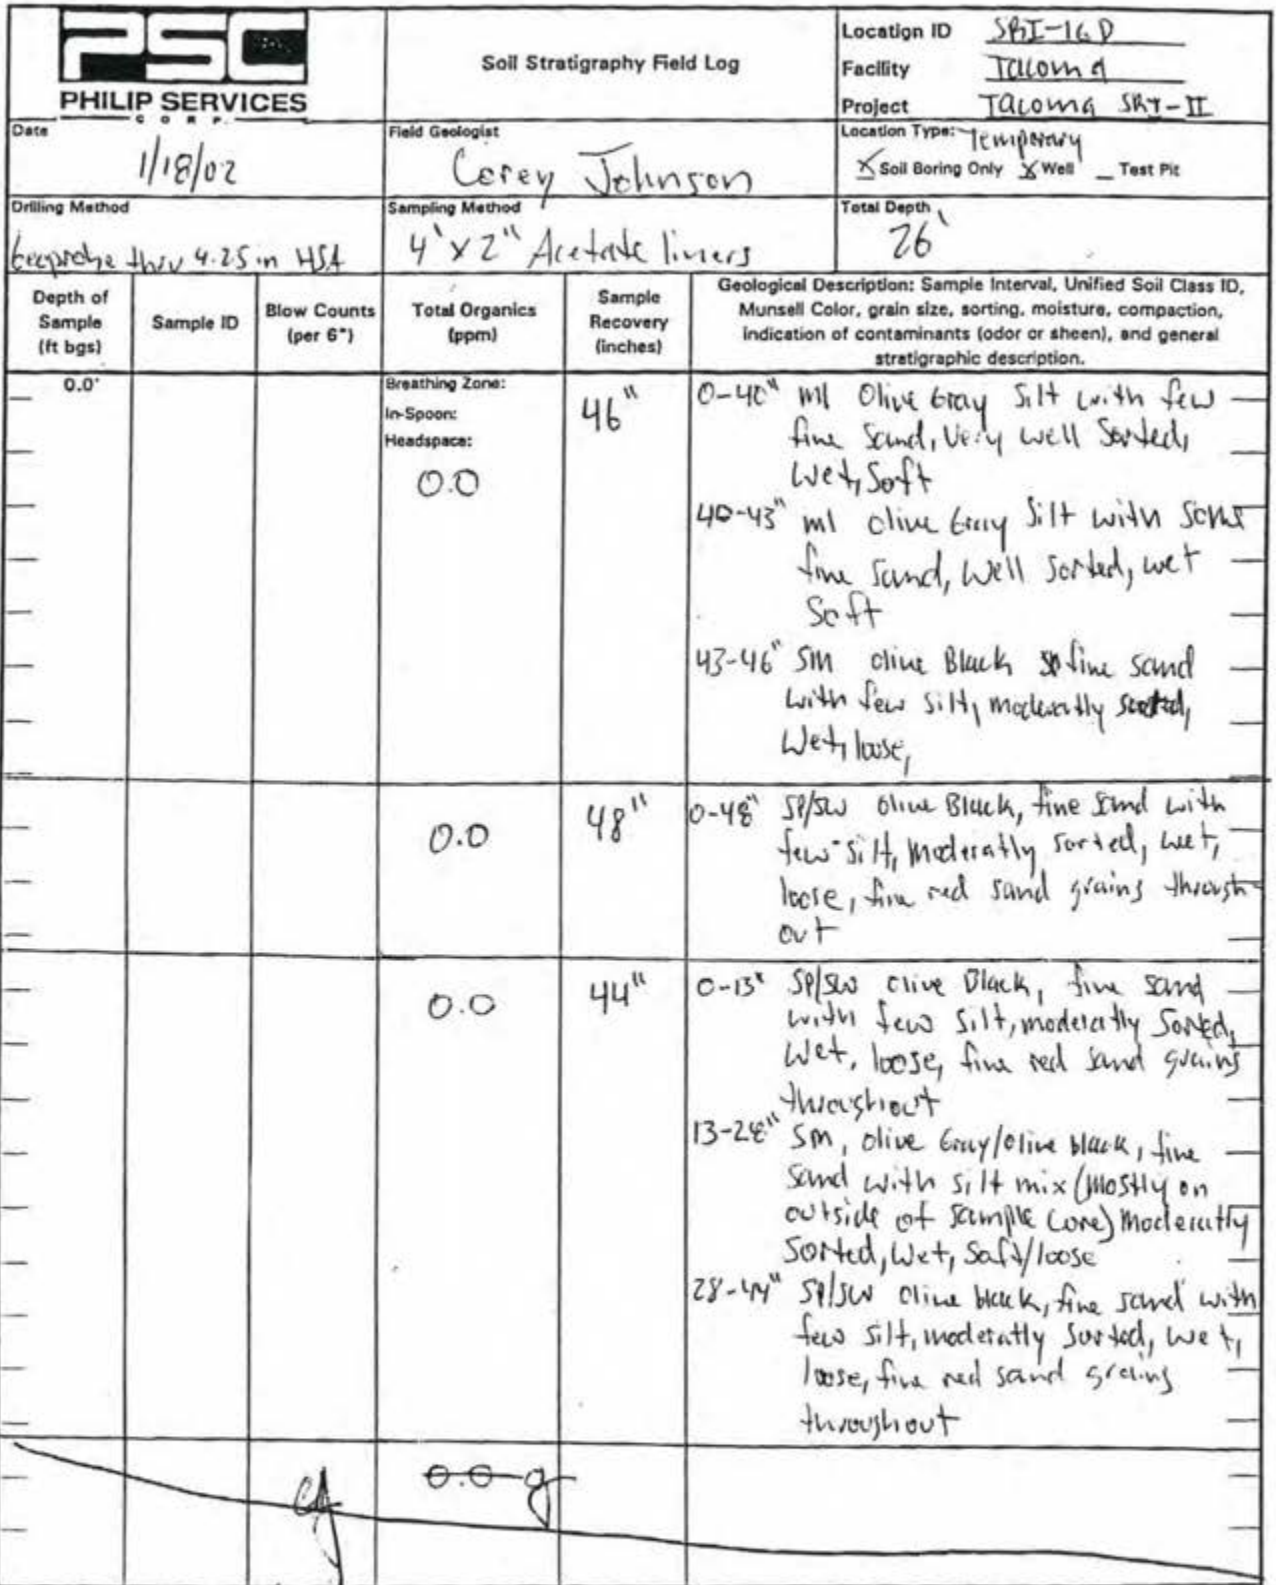 PSC
PHILIP SERVICES
CORP.
Soil Stratigraphy Field Log
Location ID SRI-16D
Facility Tacoma
Project Tacoma SRI-II
Date
1/18/02
Field Geologist
Corey Johnson
Location Type: Temporary
X Soil Boring Only X Well _ Test Pit
Drilling Method
Geeprobe thru 4.25 in HSA
Sampling Method
4' x 2" Acetate liners
Total Depth
26'
Depth of
Sample
(ft bgs)
Sample ID
Blow Counts
(per 6")
Total Organics
(ppm)
Sample
Recovery
(inches)
Geological Description: Sample Interval, Unified Soil Class ID,
Munsell Color, grain size, sorting, moisture, compaction,
indication of contaminants (odor or sheen), and general
stratigraphic description.
0.0'
Breathing Zone:
In-Spoon:
Headspace:
0.0
46"
0-40" ml Olive Gray Silt with few
fine Sand, Very well Sorted,
Wet, Soft
40-43" ml olive Gray Silt with some
fine sand, Well sorted, wet
Soft
43-46" SM olive Black fine sand
with few silt, moderatly sorted,
Wet, loose,
0.0
48"
0-48" SP/SW olive Black, fine sand with
few silt, moderatly sorted, wet,
loose, fine red sand grains through
out
0.0
44"
0-13" SP/SW olive Black, fine sand
with few silt, moderatly Sorted,
Wet, loose, fine red sand grains
throughout
13-28" SM, olive Gray/olive black, fine
sand with silt mix (mostly on
outside of sample core) moderatly
sorted, Wet, Soft/loose
28-44" SP/SW olive black, fine sand with
few silt, moderatly sorted, wet,
loose, fine red sand grains
throughout
CJ
0.0 CJ